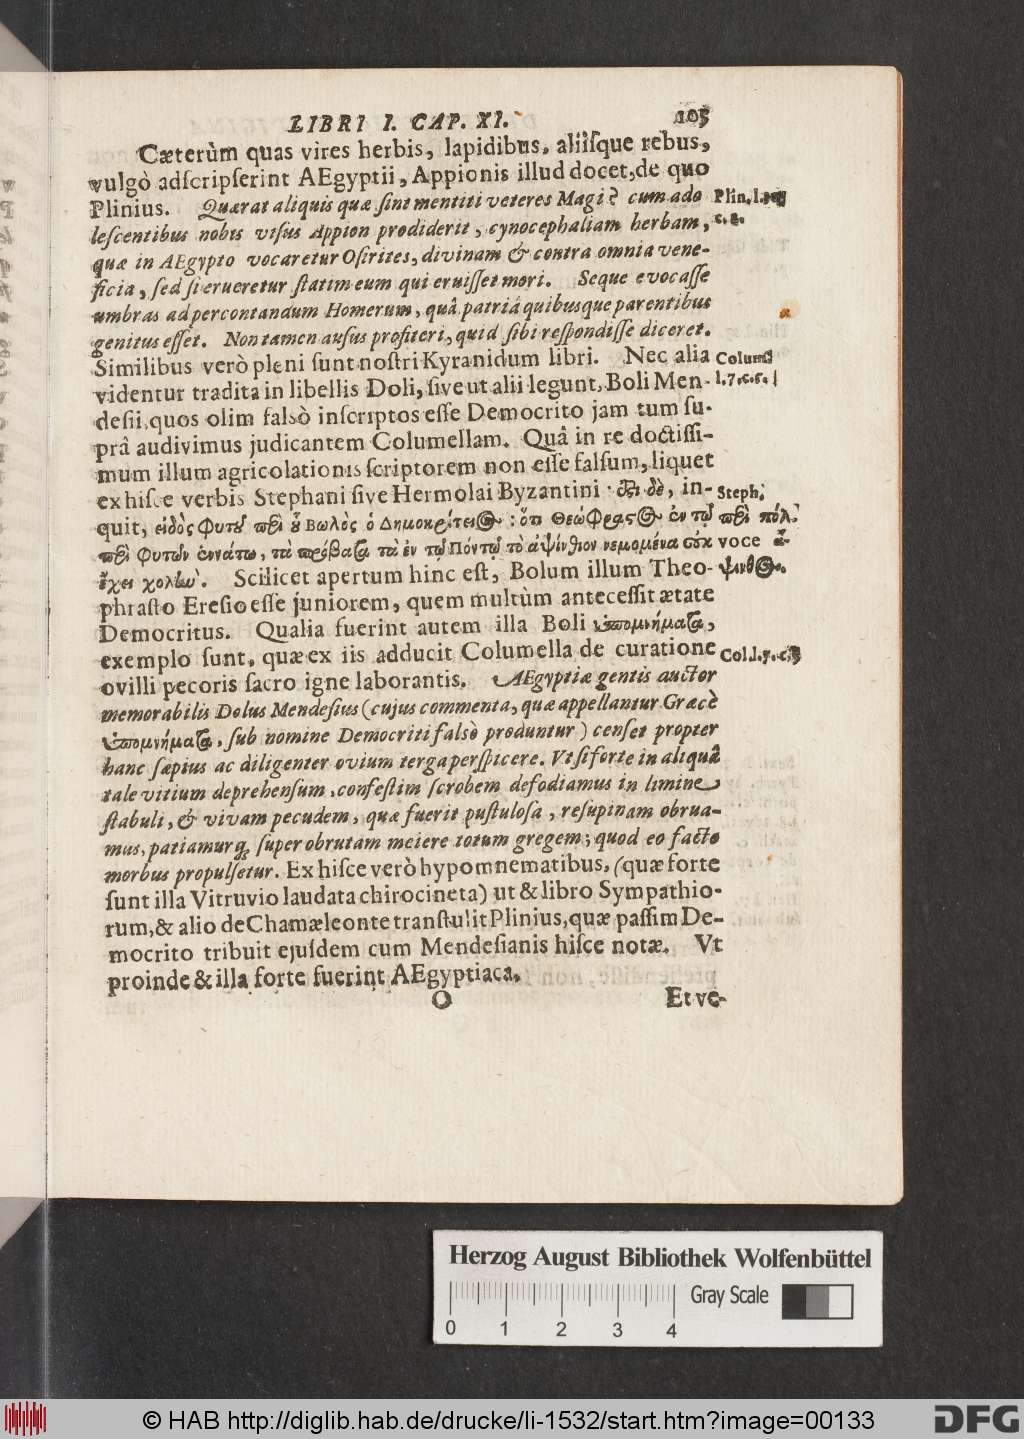 LIBRI I. CAP. XI. 105
Cæterùm quas vires herbis, lapidibus, aliisque rebus,
vulgò adscripserint AEgyptii, Appionis illud docet, de quo
Plinius. Quærat aliquis quæ sint mentiti veteres Magi? cum ado
Plin. l.
lescentibus nobis visus Appion prodiderit, cynocephaliam herbam,
quæ in AEgypto vocaretur Osirites, divinam & contra omnia vene-
ficia, sed si erueretur statim eum qui eruisset mori. Seque evocasse
umbras ad percontandum Homerum, quâ patriâ quibusque parentibus
genitus esset. Non tamen ausus profiteri, quid sibi respondisse diceret.
Similibus verò pleni sunt nostri Kyranidum libri. Nec alia
Colum.
videntur tradita in libellis Doli, sive ut alii legunt, Boli Men-
l. 7. c. 5.
desii, quos olim falsò inscriptos esse Democrito jam tum su-
prâ audivimus judicantem Columellam. Quâ in re doctissi-
mum illum agricolationis scriptorem non esse falsum, liquet
ex hisce verbis Stephani sive Hermolai Byzantini: ἔστι δὲ, in-
Steph.
quit, εἶδος φυτοῦ περὶ οὗ Βωλὸς ὁ Δημοκρίτειος: ὅτι Θεόφραστος ἐν τῷ περὶ πόλ.
περὶ φυτῶν ἐννάτῳ, τὰ πρόβατα τὰ ἐν τῷ Πόντῳ τὸ ἀψίνθιον νεμομένα οὐκ
voce ἀ-
ψινθος.
ἔχει χολὴν. Scilicet apertum hinc est, Bolum illum Theo-
phrasto Eresio esse juniorem, quem multùm antecessit ætate
Democritus. Qualia fuerint autem illa Boli ὑπομνήματα,
exemplo sunt, quæ ex iis adducit Columella de curatione
Col. l. 7. c. 5
ovilli pecoris sacro igne laborantis. AEgyptiæ gentis auctor
memorabilis Dolus Mendesius (cujus commenta, quæ appellantur Græcè
ὑπομνήματα, sub nomine Democriti falsò produntur) censet propter
hanc sæpius ac diligenter ovium terga perspicere. Ut si forte in aliquâ
tale vitium deprehensum, confestim scrobem defodiamus in limine
stabuli, & vivam pecudem, quæ fuerit pustulosa, resupinam obrua-
mus, patiamurq; super obrutam meiere totum gregem; quod eo facto
morbus propulsetur. Ex hisce verò hypomnematibus, (quæ forte
sunt illa Vitruvio laudata chirocineta) ut & libro Sympathio-
rum, & alio de Chamæleonte transtulit Plinius, quæ passim De-
mocrito tribuit ejusdem cum Mendesianis hisce notæ. Vt
proinde & illa forte fuerint AEgyptiaca.
O Et ve-
Herzog August Bibliothek Wolfenbüttel
0 1 2 3 4 Gray Scale
© HAB http://diglib.hab.de/drucke/li-1532/start.htm?image=00133
DFG